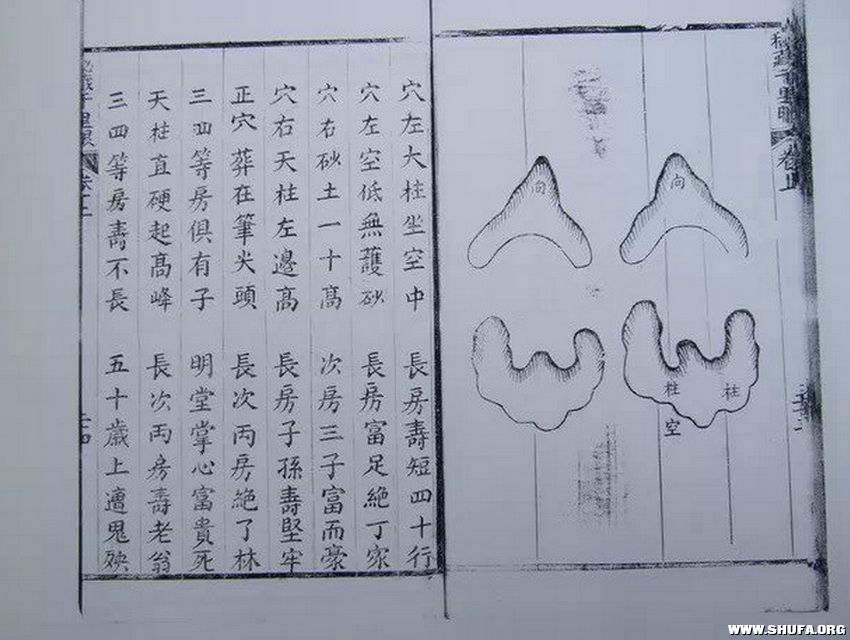 秘藏千里眼
卷上
向
向
柱
柱
空
穴左大柱坐空中 長房壽短四十行
穴左空低無護砂 長房富足絶丁家
穴右砂土一十高 次房三子富而豪
穴右天柱左邊高 長房子孫壽堅牢
正穴葬在筆尖頭 長次丙房絶了林
三四等房俱有子 明堂掌心富貴死
天柱直硬起高峰 長次丙房壽老翁
三四等房壽不長 五十歲上遭鬼殃
WWW.SHUFA.ORG